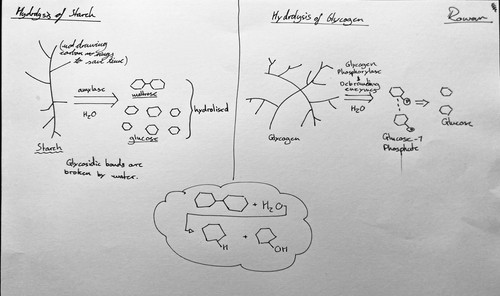 Hydrolysis of Starch
(not drawing
carbon rings
to save time)
amylase
H₂O
maltose
glucose
hydrolised
Starch
Glycosidic bonds are
broken by water.
Hydrolysis of Glycogen
Rowan
Glycogen
Phosphorylase
&
Debranching
enzymes
H₂O
Glycogen
P
P
Glucose-1
Phosphate
Glucose
+ H₂O
H
+
OH